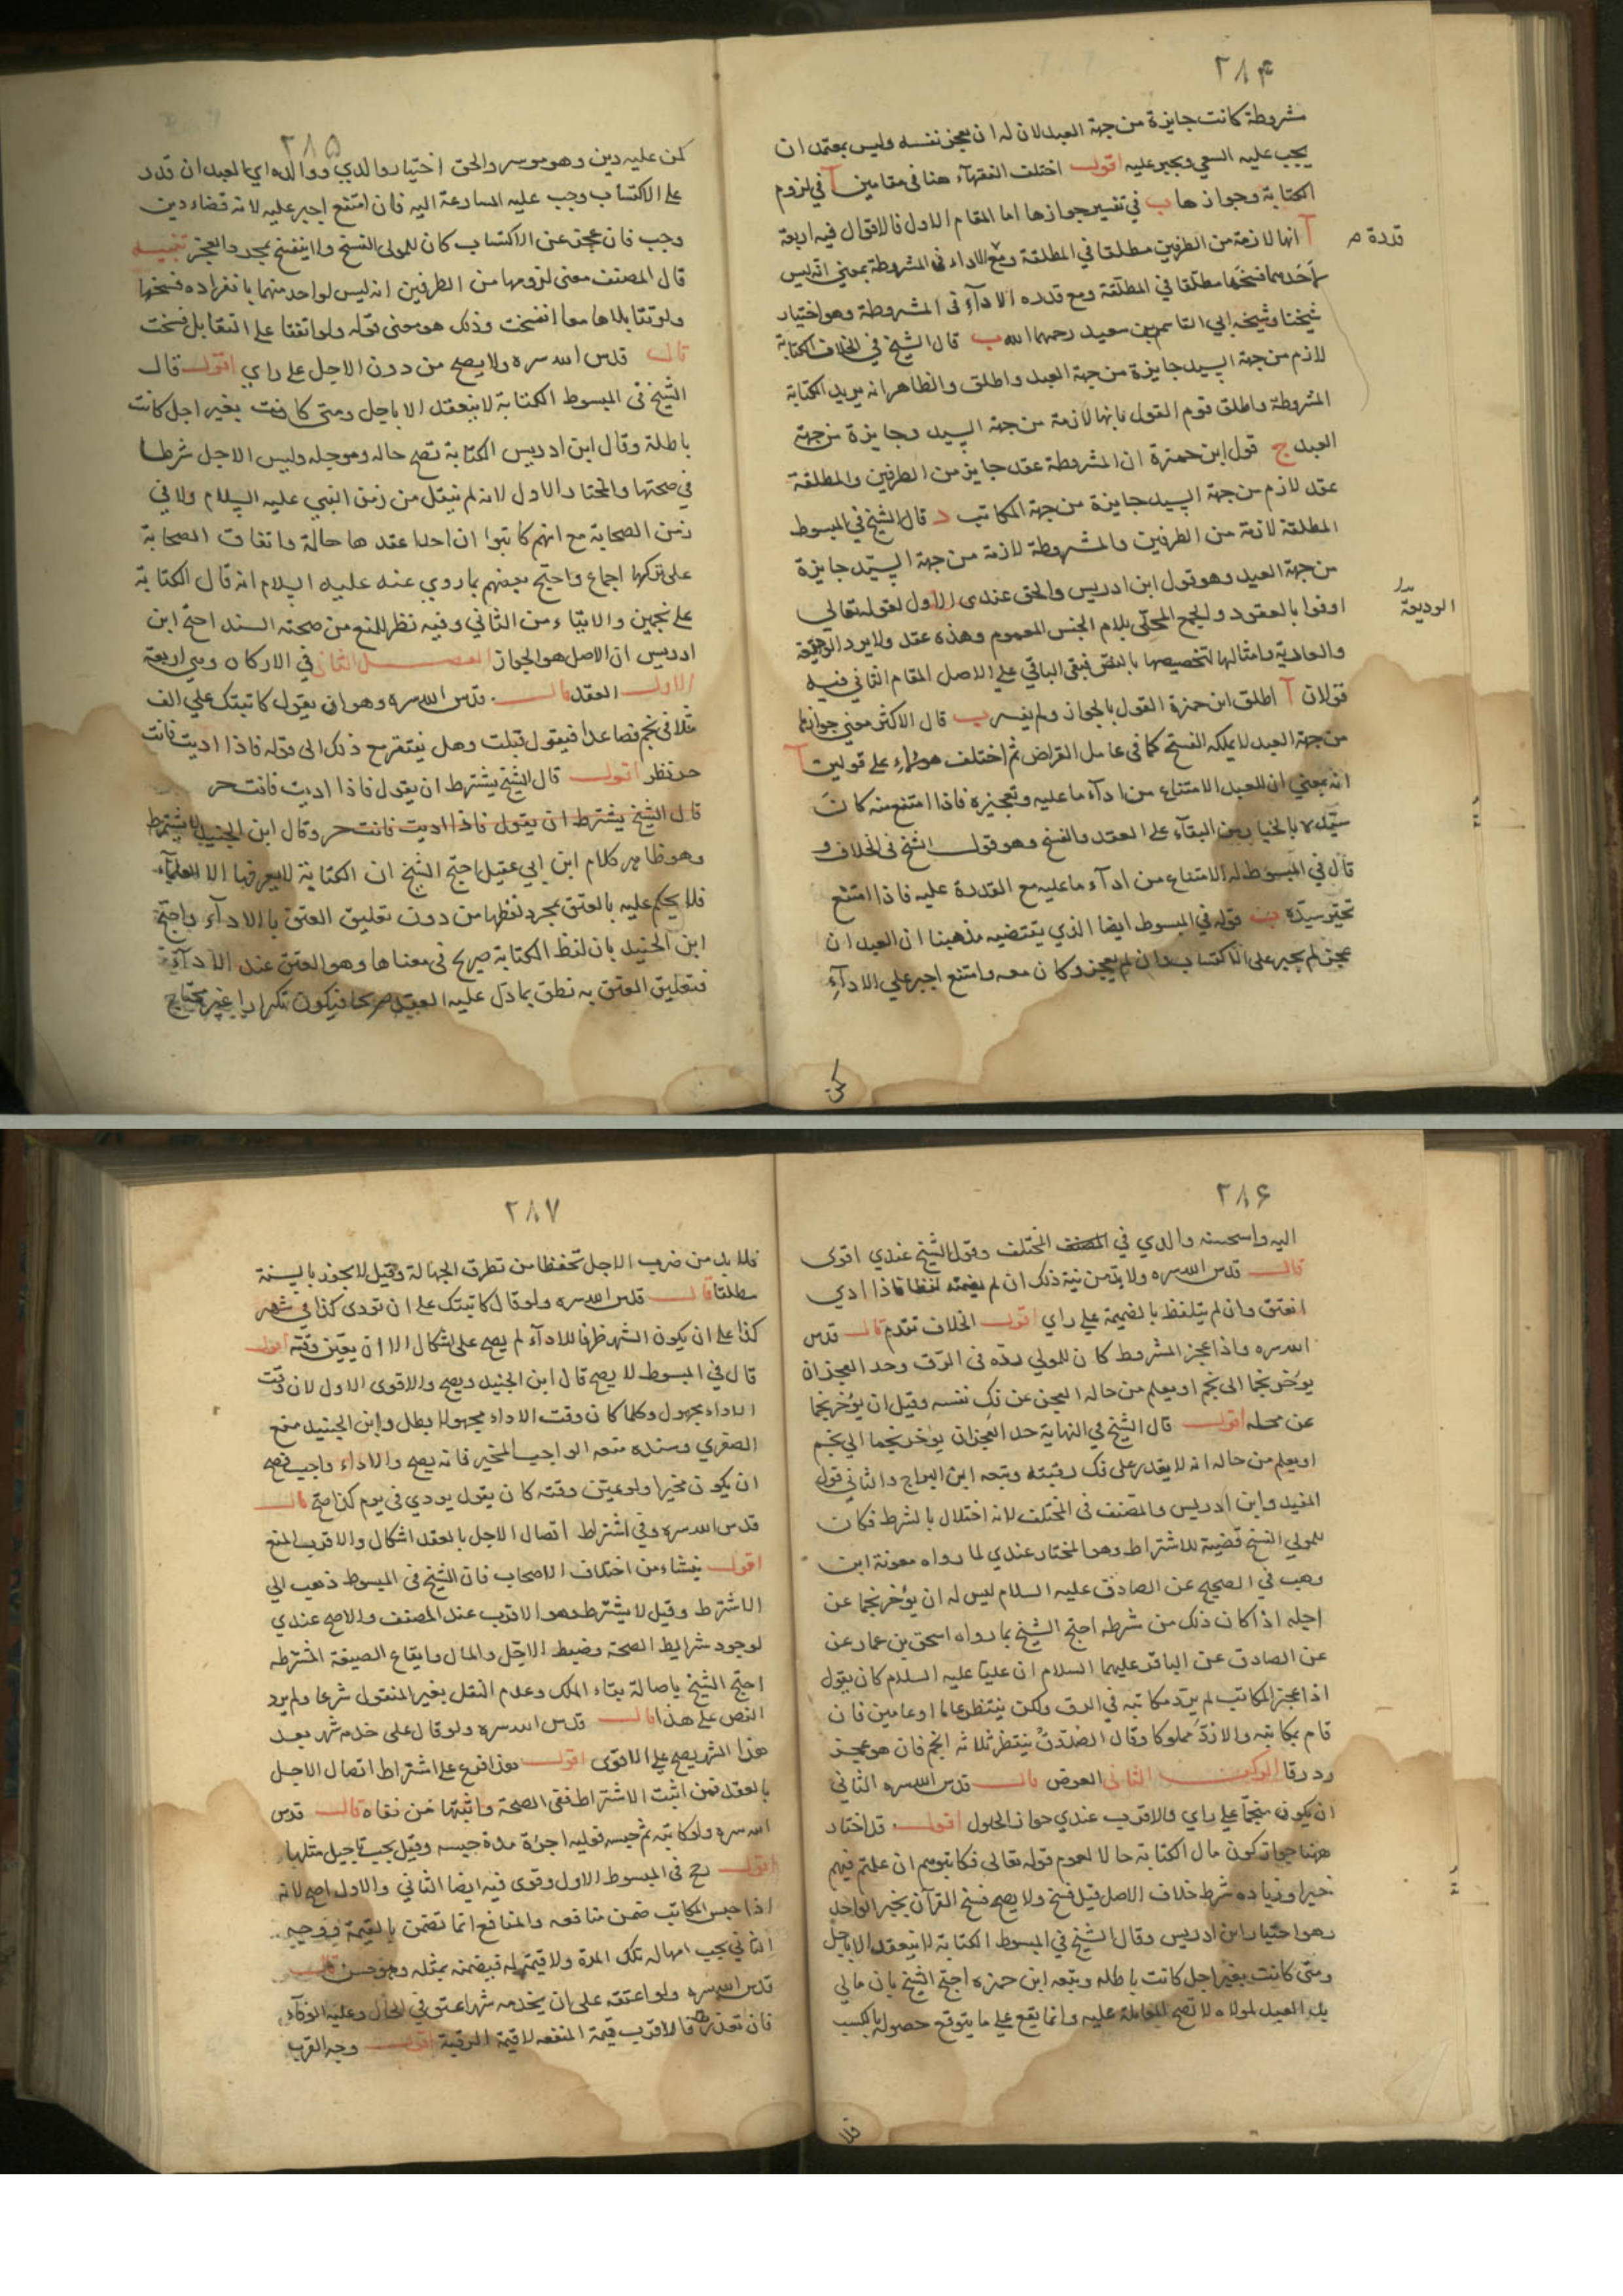 ٢٨۴
مشروطة كانت جايزة من جهة العبد لان له ان يعجز نفسه وليس بمعتمد ان
يجب عليه السعي ويجبر عليه اقول اختلف الفقهآء هنا فى مقامين آ في لزوم
الكتابة وجوازها ب في تفسير جوازها اما المقام الاول فالاقوال فيه اربعة
آ انها لازمة من الطرفين مطلقا في المطلقة ومع الاداء فى المشروطة بمعنى انه ليس
لأحدهما فسخها مطلقا في المطلقة ومع قدره الادآء فى المشروطة وهو اختيار
شيخنا وشيخه ابي القاسم بن سعيد رحمهما الله ب قال الشيخ في الخلاف الكتابة
لازم من جهة السيد جايزة من جهة العبد واطلق والظاهر انه يريد الكتابة
المشروطة واطلق قوم القول بانها لازمة من جهة السيد وجايزة من جهة
العبد ج قول ابن حمزة ان المشروطة عقد جايز من الطرفين والمطلقة
عقد لازم من جهة السيد جايزة من جهة المكاتب د قال الشيخ في المبسوط
المطلقة لازمة من الطرفين والمشروطة لازمة من جهة السيد جايزة
من جهة العبد وهو قول ابن ادريس والحق عندى الاول لقوله تعالي
اوفوا بالعقود والجمع المحلّى بلام الجنس للعموم وهذه عقد ولا يرد الوديعة
والعارية وامثالها لتخصيصها بالنص فبقى الباقي علي الاصل المقام الثاني فيه
قولان آ اطلق ابن حمزة القول بالجواز ولم يفسره ب قال الاكثر معني جوازها
من جهة العبد لا يملكه الفسخ كما فى عامل القراض ثم اختلف هؤلاء على قولين آ
انه بمعني ان للعبد الامتناع من ادآء ما عليه وتعجيزه فاذا امتنع منه كان
سيّده بالخيار بين البقآء على العقد والفسخ وهو قول الشيخ فى الخلاف و
قال في المبسوط له الامتناع من ادآء ما عليه مع القدرة عليه فاذا امتنع
تخير سيّده ب قوله في المبسوط ايضا الذي يقتضيه مذهبنا ان العبد ان
عجز لم يجبر على الاكتساب وان لم يعجز وكان معه وامتنع اجبر علي الادآء
قدرة م
الوديعة
٢٨۵
كمن عليه دين وهو موسر والحق اختيار والدي ووالده اي العبد ان قدر
على الاكتساب وجب عليه المسارعة اليه فان امتنع اجبر عليه لانه قضاء دين
وجب فان عجز عن الاكتساب كان للمولى الفسخ ولا ينفسخ بمجرد العجز تنبيه
قال المصنف معنى لزومها من الطرفين انه ليس لواحد منهما بانفراده فسخها
ولو تقايلاها معا انفسخت وذلك هو معنى قوله ولو اتفقا على التقايل فسخت
قال قدس الله سره ولا يصح من دون الاجل على راي اقول قال
الشيخ فى المبسوط الكتابة لا ينعقد الا باجل ومتى كانت بغير اجل كانت
باطلة وقال ابن ادريس الكتابة تصح حاله وموجله وليس الاجل شرطا
في صحتها والمختار الاول لانه لم ينقل من زمن النبي عليه السلام ولا في
زمن الصحابة مع انهم كاتبوا ان احدا عقدها حالّة واتفاق الصحابة
على تركها اجماع واحتج بعضهم بما روي عنه عليه السلام انه قال الكتابة
على نجمين والايتاء من الثاني وفيه نظر للمنع من صحة السند احتج ابن
ادريس ان الاصل هو الجواز الفصل الثانى في الاركان وهي اربعة
الاول العقد قال قدس الله سره وهو ان يقول كاتبتك علي الف
مثلا فى نجم فصاعدا فيقول قبلت وهل يفتقر مع ذلك الى قوله فاذا اديت فانت
حر نظر اقول قال الشيخ يشترط ان يقول فاذا اديت فانت حر
قال الشيخ يشترط ان يقول فاذا اديت فانت حر وقال ابن الجنيد لا يشترط
وهو ظاهر كلام ابن ابي عقيل احتج الشيخ ان الكتابة لا يعرفها الا العلمآء
فلا يحكم عليه بالعتق بمجرد لفظها من دون تعليق العتق بالادآء واحتج
ابن الجنيد بان لفظ الكتابة صريح فى معناها وهو العتق عند الادآء
فتعليق العتق به نطق بما دل عليه العقد صريحا فيكون تكرارا غير محتاج
٢٨۶
اليه واستحسنه والدي في المصنف المختلف وقول الشيخ عندي اقوى
قال قدس الله سره ولا بد من نية ذلك ان لم يضمنه لفظا فاذا ادي
انعتق وان لم يتلفظ بالضميمة علي راي اقول الخلاف تقدم قال قدس
الله سره واذا عجز المشروط كان للمولي رده فى الرق وحد العجز ان
يؤخر نجما الى نجم او يعلم من حاله العجز عن فك نفسه وقيل ان يؤخر نجما
عن محله اقول قال الشيخ في النهاية حد العجز ان يؤخر نجما الي نجم
او يعلم من حاله انه لا يقدر على فك رقبته وتبعه ابن البراج والثاني قول
المفيد وابن ادريس والمصنف فى المختلف لانه اختلال بالشرط فكان
للمولي الفسخ قضية للاشتراط وهو المختار عندي لما رواه معوية ابن
وهب في الصحيح عن الصادق عليه السلام ليس له ان يؤخر نجما عن
اجله اذا كان ذلك من شرطه احتج الشيخ بما رواه اسحق بن عمار عن
عن الصادق عن الباقر عليهما السلام ان عليا عليه السلام كان يقول
اذا عجز المكاتب لم يرد مكاتبه في الرق ولكن ينتظر عاما او عامين فان
قام بمكاتبه والا ردّ مملوكا وقال الصدوق ينتظر ثلاثه انجم فان هو عجز
رد رقا الركن الثانى العوض قال قدس الله سره الثاني
ان يكون منجما علي راي والاقرب عندي جواز الحلول اقول قد اختار
ههنا جواز كون مال الكتابة حالا لعموم قوله تعالى فكاتبوهم ان علمتم فيهم
خيرا وزياده شرط خلاف الاصل قيل فسخ ولا يصح فسخ القرآن بخبر الواحد
وهو اختيار ابن ادريس وقال الشيخ في المبسوط الكتابة لا ينعقد الا باجل
ومتى كانت بغير اجل كانت باطله وتبعه ابن حمزه احتج الشيخ بان ما لي
يد العبد لمولاه لا تصح المعاملة عليه وانما يقع علي ما يتوقع حصوله بالكسب
فلا
٢٨٧
فلا بد من ضرب الاجل تحفظا من تطرق الجهالة وقيل لا يجوز بالسنة
مطلقا قال قدس الله سره ولو قال كاتبتك على ان تودى كذا في شهر
كذا على ان يكون الشهر ظرفا للادآء لم يصح على اشكال الا ان يعيّن وقته اقول
قال في المبسوط لا يصح قال ابن الجنيد ويصح والاقوى الاول لان وقت
الاداء مجهول وكلما كان وقت الاداء مجهولا بطل وابن الجنيد منع
الصغري وسنده منعه الواجب المخير فانه يصح والاداء واجب فصح
ان يكون مخيرا ولو عين وقته كان يقول يودي في يوم كذا صح قال
قدس الله سره وفي اشتراط اتصال الاجل بالعقد اشكال والاقرب المنع
اقول ينشاء من اختلاف الاصحاب فان الشيخ فى المبسوط ذهب الي
الاشترط وقيل لا يشترط وهو الاقرب عند المصنف والاصح عندي
لوجود شرايط الصحة وضبط الاجل والمال وايقاع الصيغة المشترطه
احتج الشيخ باصالة بقاء الملك وعدم النقل بغير المنقول شرعا ولم يرد
النص على هذا قال قدس الله سره ولو قال على خدمة شهر بعد
هذا الشهر يصح على الاقوى اقول هذا فرع على اشتراط اتصال الاجل
بالعقد فمن اثبت الاشتراط نفى الصحة واثبتها من نفاه قال قدس
الله سره ولو كاتبه ثم حبسه فعليه اجرة مدة حبسه وقيل يجب تاجيل مثلها
اقول رجح فى المبسوط الاول وقوى فيه ايضا الثاني والاول اصح لانه
اذا حبس المكاتب ضمن منافعه والمنافع انما تضمن بالقيمة ووجه
الثاني يجب امهاله تلك المدة ولا قيمة له فيضمنه بمثله وهو حسن قال
قدس الله سره ولو اعتقه على ان يخدمه شهرا عتق في الحال وعليه الوفآء
فان تعذر فالاقرب قيمة المنفعه لا قيمة الرقبة اقول وجه القرب